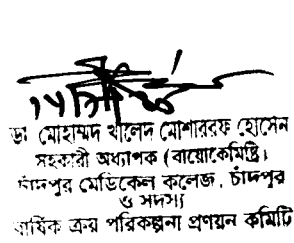 ডাঃ মোহাম্মদ খালেদ মোশাররফ হোসেন
সহকারী অধ্যাপক (বায়োকেমিষ্ট্রি)
চাঁদপুর মেডিকেল কলেজ, চাঁদপুর
ও সদস্য
বার্ষিক ক্রয় পরিকল্পনা প্রণয়ন কমিটি